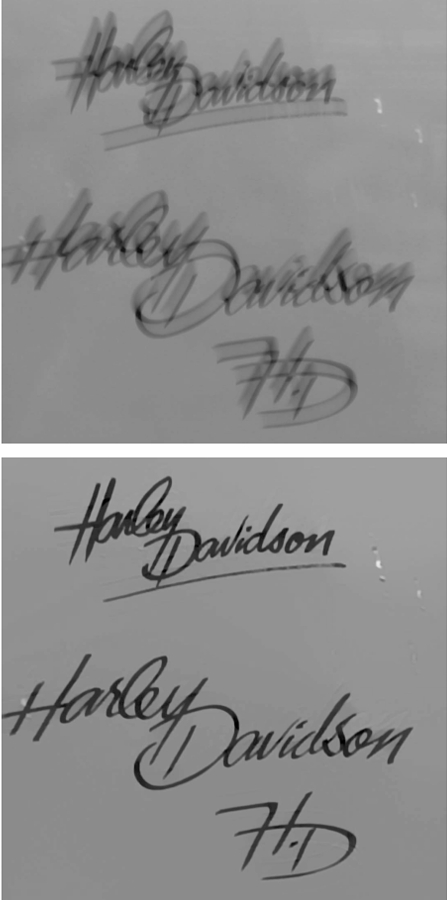 Harley
Davidson
Harley
Davidson
H.D
Harley
Davidson
Harley
Davidson
H.D